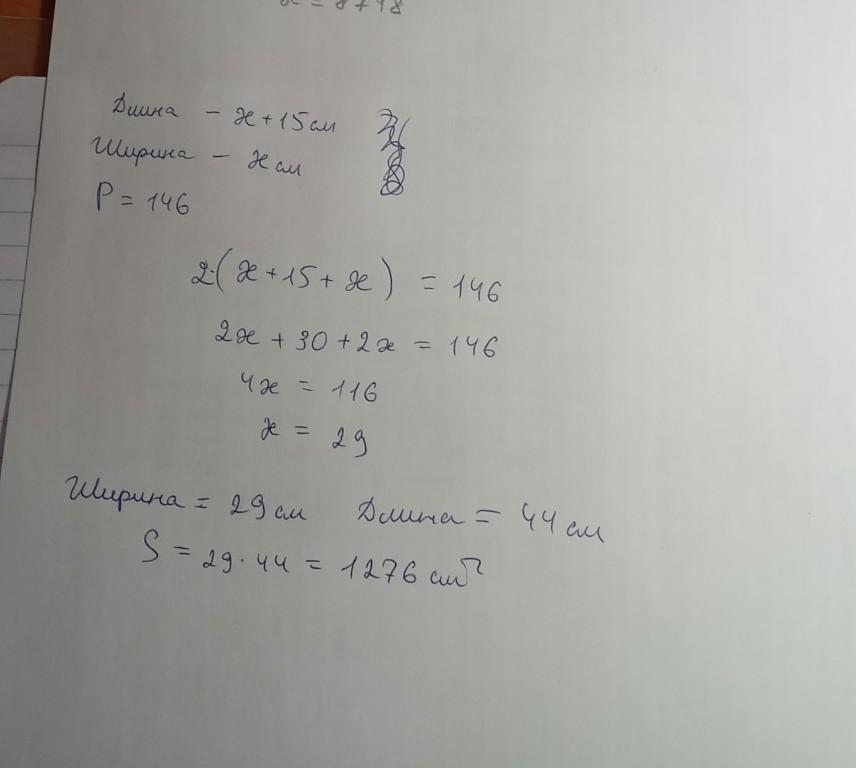 x = 8 + 48
Длина - x + 15 см
Ширина - x см
P = 146
2·(x + 15 + x) = 146
2x + 30 + 2x = 146
4x = 116
x = 29
Ширина = 29 см Длина = 44 см
S = 29 · 44 = 1276 см²